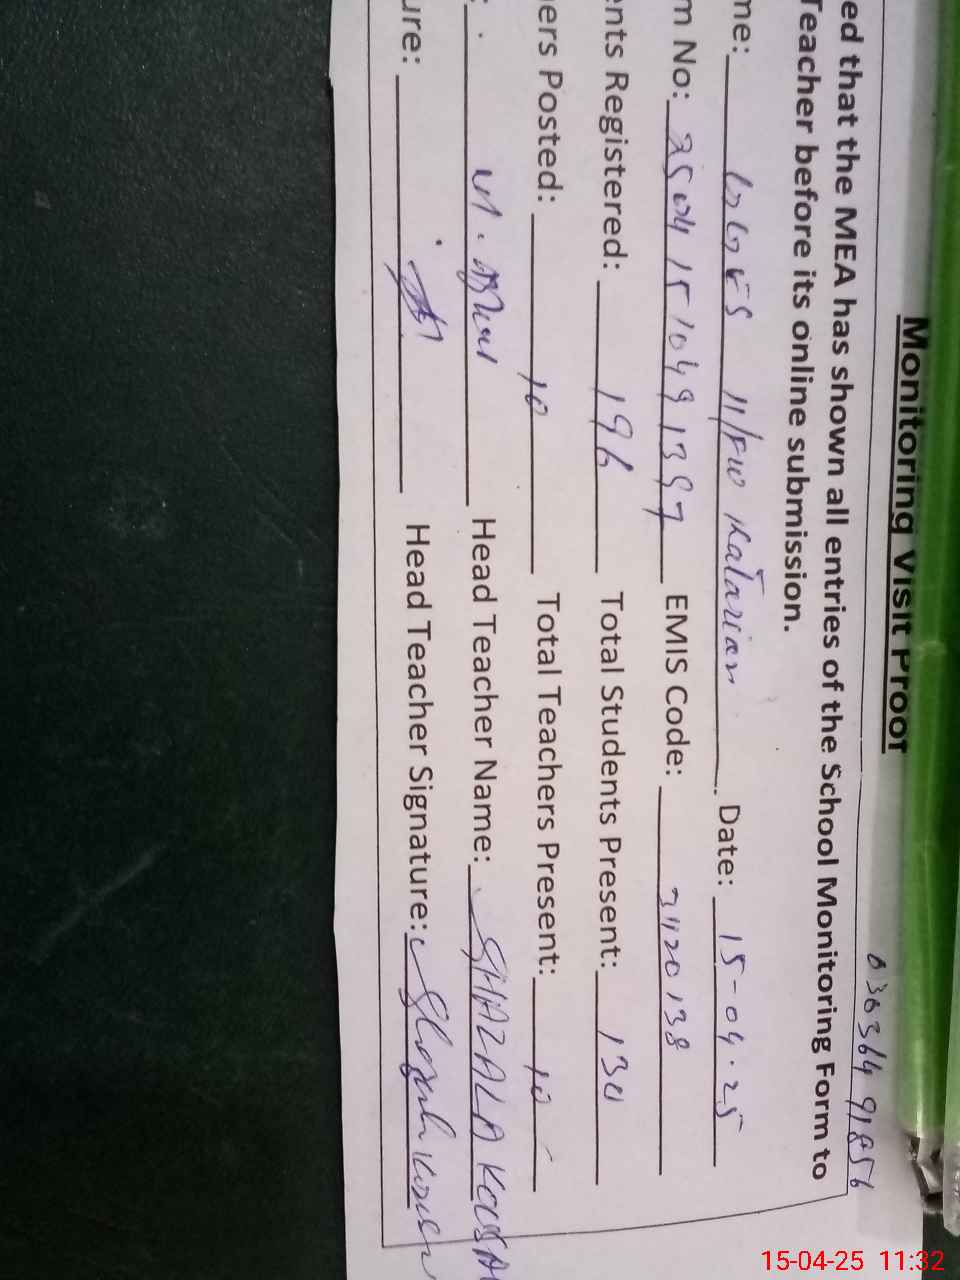 Monitoring Visit Proof
0303649 1856
ed that the MEA has shown all entries of the School Monitoring Form to
Teacher before its online submission.
me: GGES 11/FW Katarian Date: 15-04-25
m No: 2504151049 1397 EMIS Code: 31120138
ents Registered: 196 Total Students Present: 130
ers Posted: 10 Total Teachers Present: 10
: M. Head Teacher Name: GHAZALA KOUSA
ure: Head Teacher Signature:
15-04-25 11:32